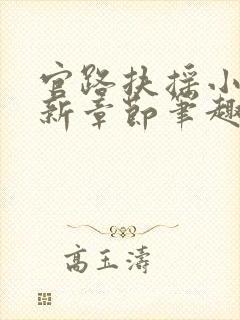 官路扶摇小
新章节笔趣
高玉涛